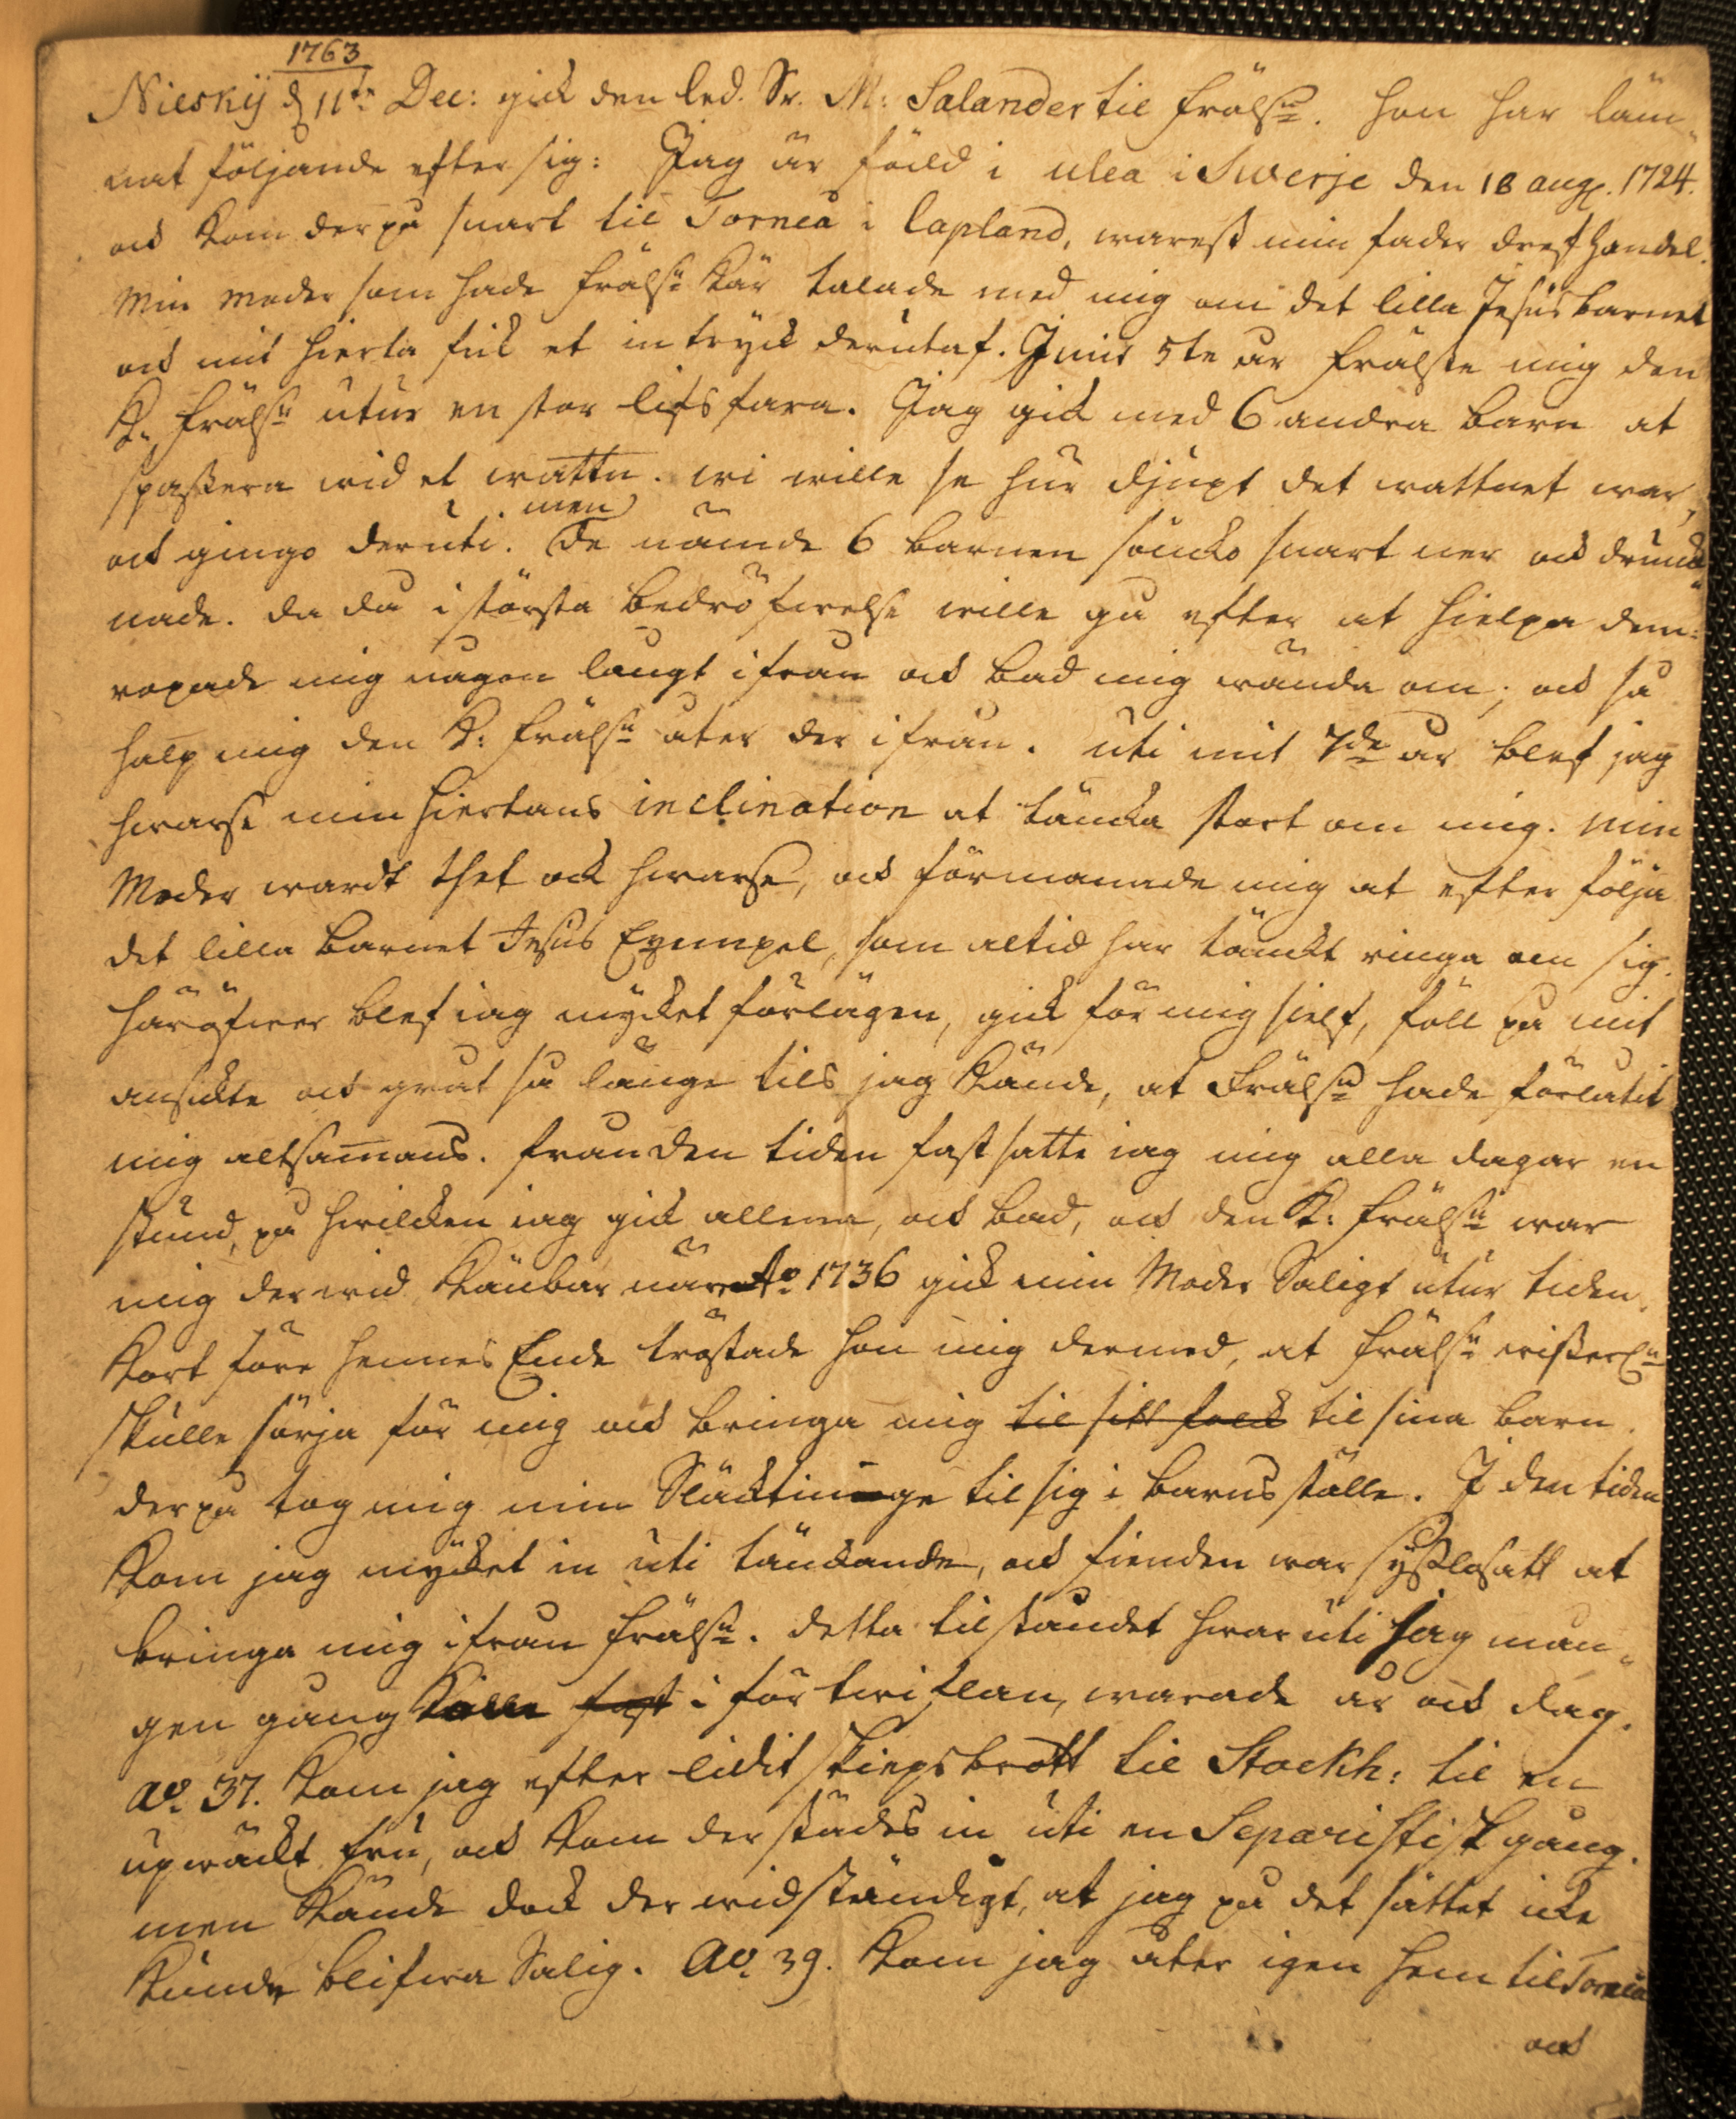 1763
Nieskÿ d 11te Dec: gick den led. Sr. M: Salander til frälsn. hon har läm-
nat följande efter sig: Jag är född i ulea i Swerje den 18 aug. 1724.
ock kom derpå snart til Torneå i Lapland, warest min fader dref handel.
Min moder som hade frälsn kär talade med mig om det lilla Jesus barnet
ock mit hierta fick et intryck derutaf. I mit 5te år frälste mig den
K. frälsn utur en stor lifsfara. Jag gick med 6 andra barn at
spassera wid et wattn. wi wille se hur djupt det wattnet war,
ock gingo deruti. men
De nämde 6 barnen söncko snart ner ock drunck-
nade. da då i största bedröfwelse wille gå efter at hielpa dem:
ropade mig någon långt ifrån ock bad mig wända om; ock så
halp mig den K: frälsn åter der ifrån. uti mit 7de år blef jag
hwarse min hiertans inclination at täncka stort om mig. Min
Moder wardt thet ock hwarse, ock förmanade mig at efter följa
det lilla barnet Jesus Exempel, som altid har tänckt ringa om sig.
häröfwer blef iag mycket förlägen, gick för mig sielf, föll på mit
ansickte ock gråt så länge tils jag kände, at Frälsn hade förlåtit
mig altsamans. från den tiden fastsatte iag mig alla dagar en
stund, på hwilcken iag gick allena, ock bad, ock den K: frälsn war
mig der wid känbar när Ao 1736 gick min Moder Saligt utur tiden.
Kort före hennes Ende tröstade hon mig dermed, at frälsn wisserln
skulle sörja för mig ock bringa mig til sitt folck til sina barn.
derpå tog mig min Släcktinge til sig i barns ställe. I den tiden
kom jag mycket in uti tänckande, ock fienden war sysslosatt at
bringa mig ifrån frälsn. detta tilståndet hwaruti jag mån-
gen gång fast i förtwiflan, warade år ock dag.
Ao. 37. kom jag efter lidit skiepsbrott til Stockh: til en
upwäckt fru, ock kom derstädes in uti en Separistisk gång.
men kände dock der wid ständigt, at jag på det sättet icke
kunde blifwa Salig. Ao. 39. kom jag åter igen hem til Torneå
ock